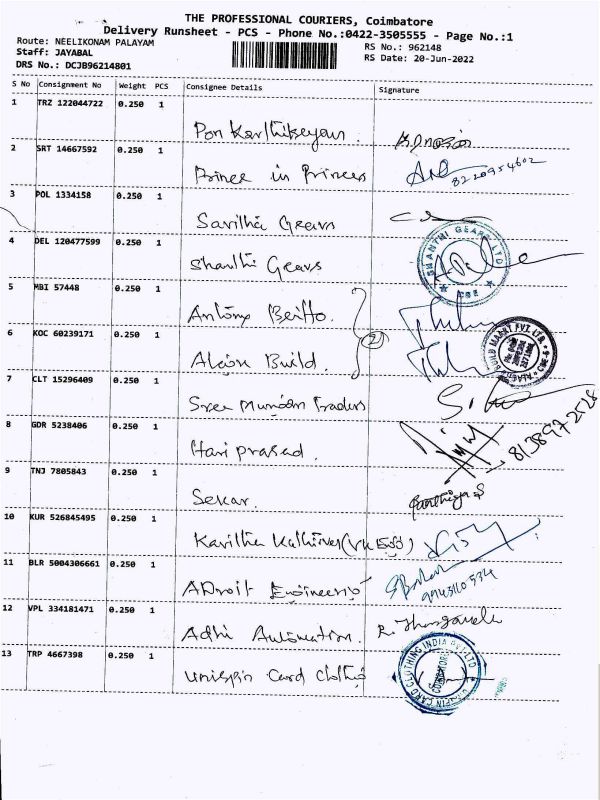 THE PROFESSIONAL COURIERS, Coimbatore
Delivery Runsheet - PCS - Phone No.:0422-3505555 - Page No.:1
Route: NEELIKONAM PALAYAM
Staff: JAYABAL
DRS No.: DCJB96214801
RS No.: 962148
RS Date: 20-Jun-2022
S No Consignment No Weight PCS Consignee Details Signature
1 TRZ 122044722 0.250 1
Pon Karthikeyan.
2 SRT 14667592 0.250 1
Prince in Princess 8220954602
3 POL 1334158 0.250 1
Savitha Gears
4 DEL 120477599 0.250 1
Shanthi Gears SHANTHI GEARS LTD CBE
5 MBI 57448 0.250 1
Antony Britto.
6 KOC 60239171 0.250 1
Alaion Build. 2 BUILD MAART PVT. LTD.
7 CLT 15296409 0.250 1
Sree Murugan Traders
8 GDR 5238406 0.250 1
Hari prasad. 8138972528
9 TNJ 7805843 0.250 1
Sekar. Karthiga S
10 KUR 526845495 0.250 1
Kavitha
11 BLR 5004306661 0.250 1
ADroit Engineering
12 VPL 334181471 0.250 1
Adhi Automation. R. Thangavelu
13 TRP 4667398 0.250 1
Unispin Card Clothing UNISPIN CARD CLOTHING INDIA PVT-LTD COIMBATORE